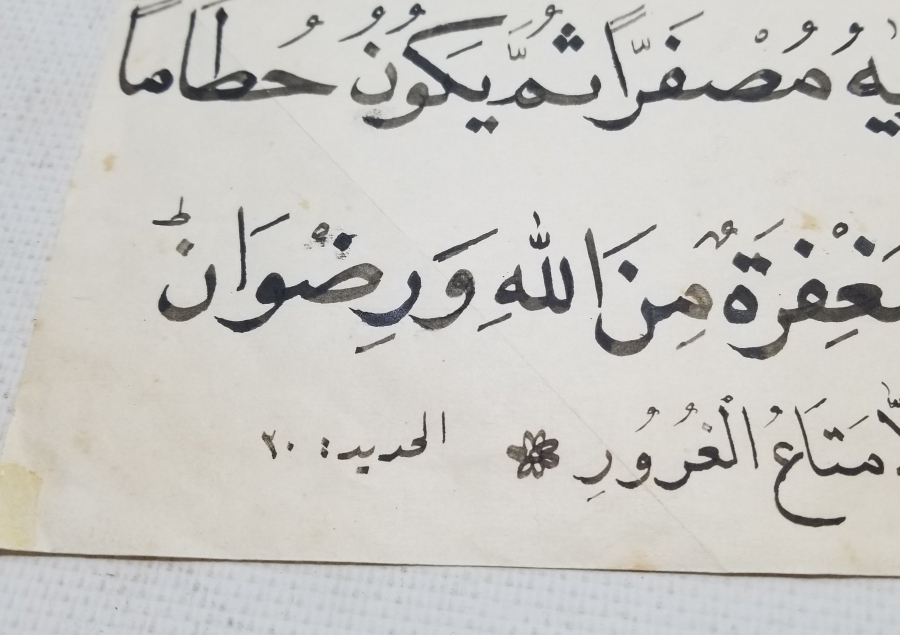 مُصْفَرًّا ثُمَّ يَكُوْنُ حُطَامًا
مَغْفِرَةٌ مِنَ اللهِ وَرِضْوَانٌ ؕ
مَتَاعُ الْغُرُوْرِ الحديد: ٢٠